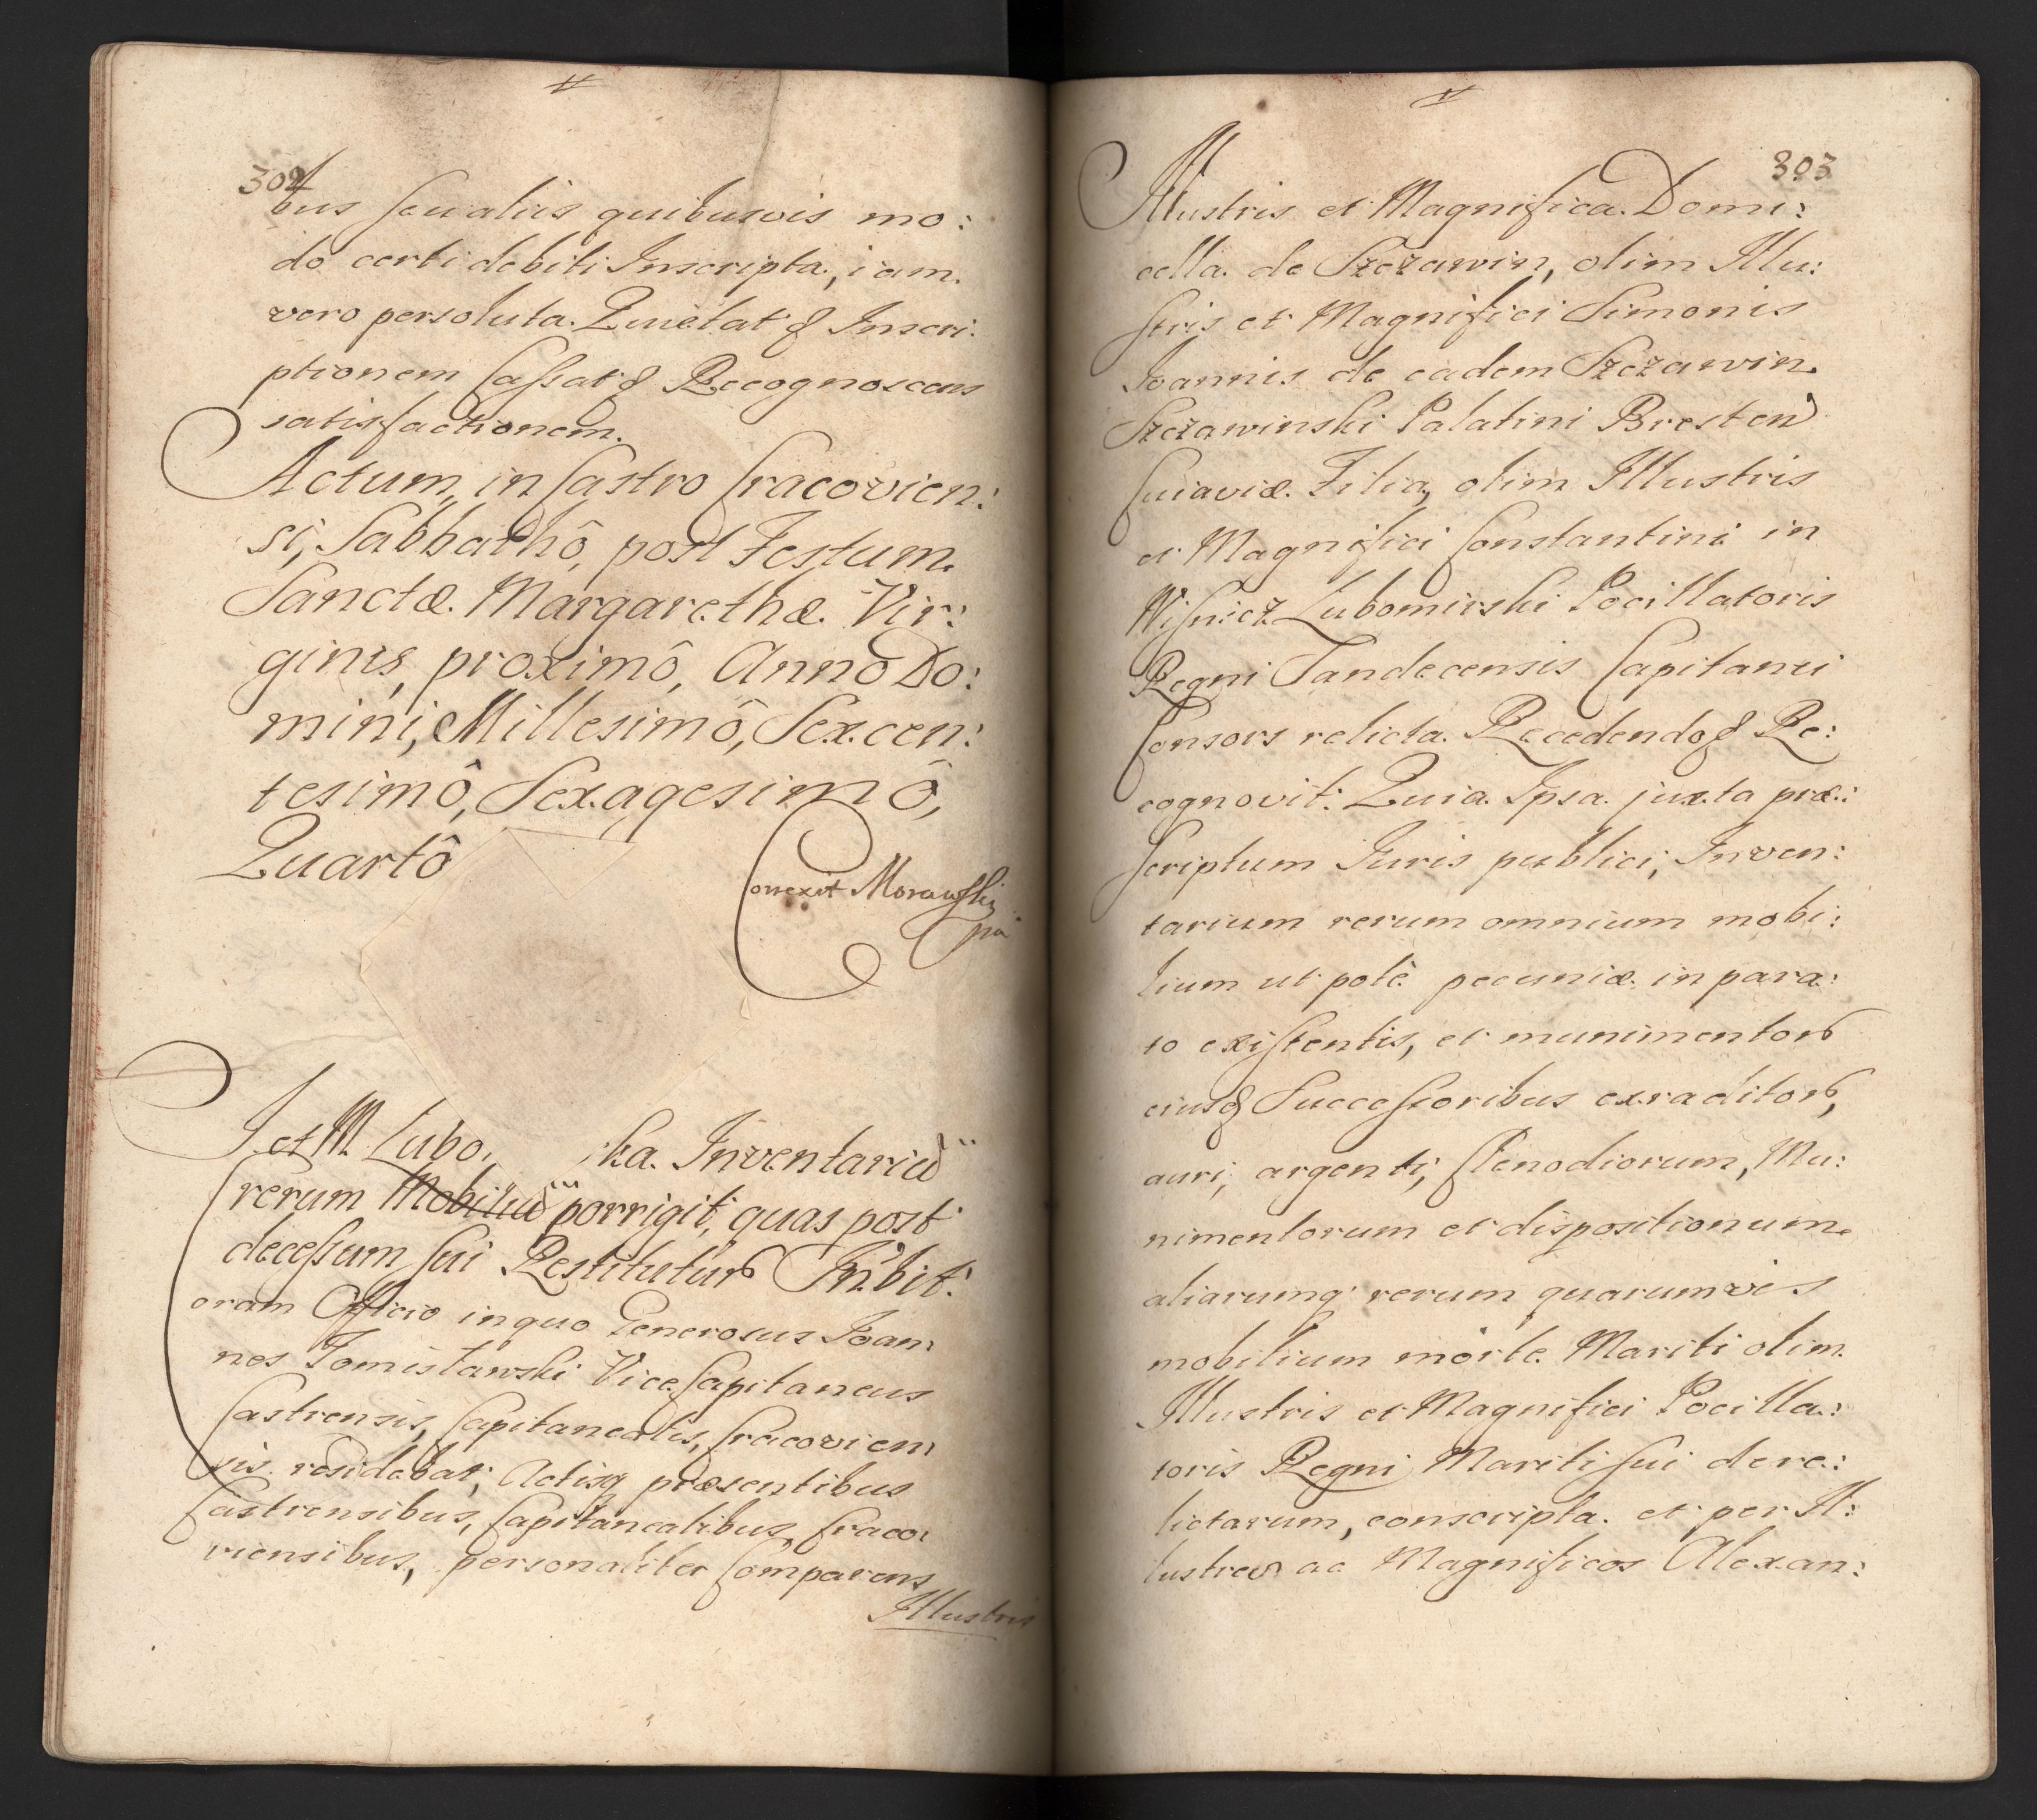 302
bus seu aliis quibusvis mo:
do certi debiti Inscripta, iam
vero persoluta. Quietatq Inscri:
ptionem Cassatq Recognoscens
satisfactionem.
Actum, in Castro Cracovien:
si, Sabbathô, post Festum
Sanctæ Margarethæ Vir:
ginis, proximô, Anno Do:
mini, Millesimô, Sexcen:
tesimô, Sexagesimô,
Quartô
Correxit Morawski
pa
I. et M. Lubo, ka. Inventariũ
rerum Mobiliũ porrigit, quas post
decessum sui Restitutur
oram Officio in quo Generosus Ioan:
nes Tomisławski Vice Capitaneus
Castrensis, Capitanealis, Cracovien:
sis residebat, Actisq præsentibus
Castrensibus, Capitanealibus Craco:
viensibus, personaliter Comparens
Illustris
303
Illustris et Magnifica Domi:
cella de Szczawin, olim Illu:
stris et Magnifici Simonis
Ioannis de eadem Szczawin
Szczawinski Palatini Bresten
Cuiaviæ Filia, olim Illustris
et Magnifici Constantini in
Wisnicz Lubomirski Pocillatoris
Regni Sandecensis Capitanei
Consors relicta. Recedendoq Re:
cognovit: Quia Ipsa juxta præ:
scriptum Iuris publici, Inven:
tarium rerum omnium mobi:
lium ut potè pecuniæ in para:
to existentis, et munimentor
eiusq Successoribus extraditor,
auri, argenti, Clenodiorum, Mu:
nimentorum et dispositionum
aliarumq rerum quarumvis
mobilium morte Mariti olim
Illustris et Magnifici Pocilla:
toris Regni Mariti sui dere:
lictarum, conscripta. et per Il:
lustres ac Magnificos Alexan: